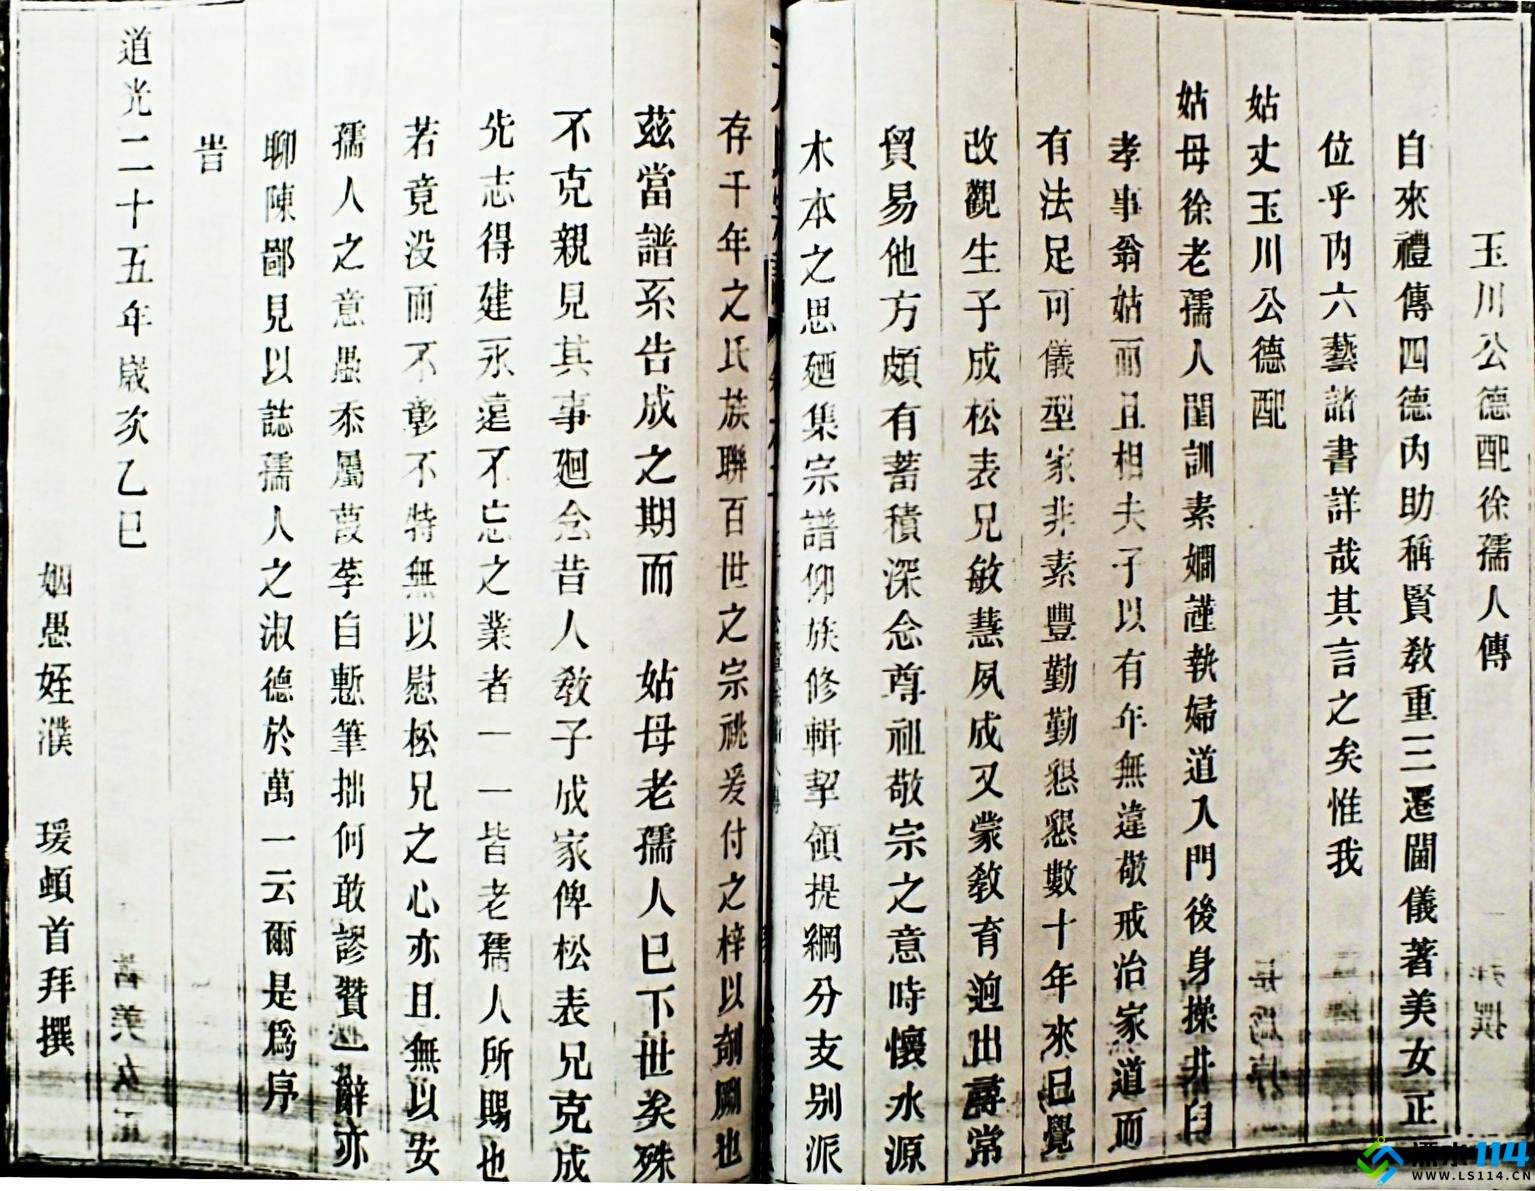 玉川公德配徐孺人傳
自來禮傳四德內助稱賢敎重三遷閫儀著美女正
位乎內六藝諸書詳哉其言之矣惟我
姑丈玉川公德配
姑母徐老孺人閨訓素嫻謹執婦道入門後身操井臼
孝事翁姑而且相夫子以有年無違敬戒治家道而
有法足可儀型家非素豐勤勤懇懇數十年來已覺
改觀生子成松表兄敏慧夙成又蒙敎育迥出尋常
貿易他方頗有蓄積深念尊祖敬宗之意時懷水源
木本之思廼集宗譜仰族修輯挈領提綱分支别派
存千年之氏族聯百世之宗祧爰付之梓以剞劂也
茲當譜系告成之期而　姑母老孺人已下世矣殊
不克親見其事廻念昔人敎子成家俾松表兄克成
先志得建永遠不忘之業者一一皆老孺人所賜也
若竟没而不彰不特無以慰松兄之心亦且無以安
孺人之意愚忝屬葭莩自慙筆拙何敢謬贊一辭亦
聊陳鄙見以誌孺人之淑德於萬一云爾是爲序
旹
道光二十五年歲次乙巳
姻愚姪濮　瑗頓首拜撰
溧水114
WWW.LS114.CN